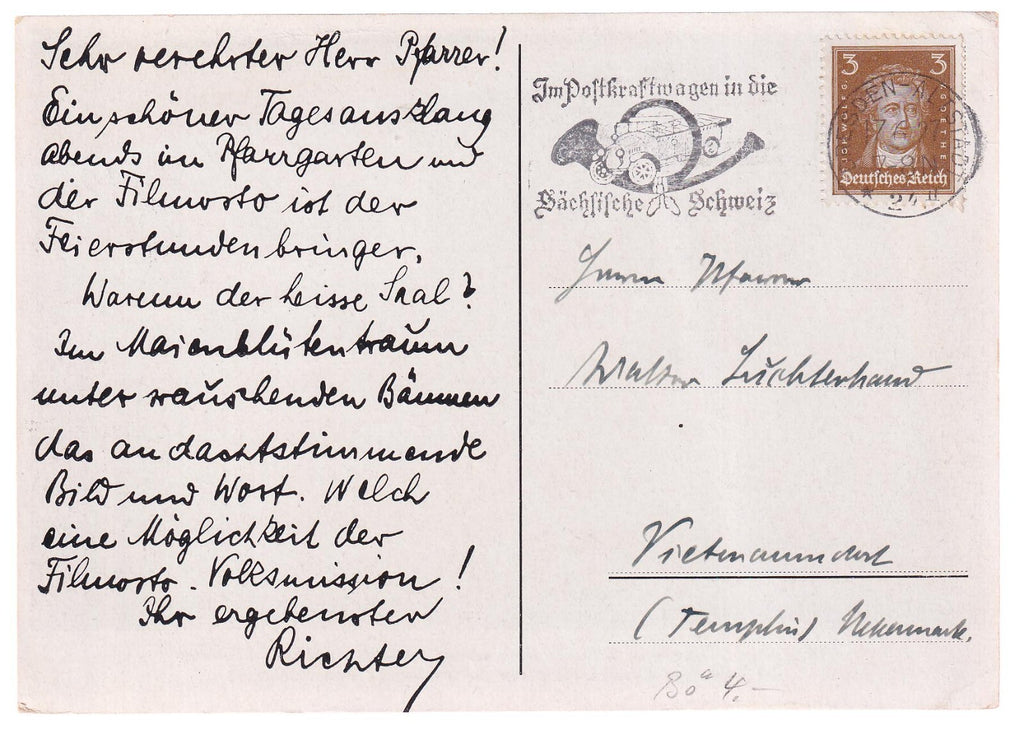 Sehr verehrter Herr Pfarrer!
Ein schöner Tagesausklang
abends im Pfarrgarten und
der Filmosto ist der
Feierstundenbringer.
Warum der heisse Saal?
Im Maienblütentraum
unter rauschenden Bäumen
das andachtstimmende
Bild und Wort. Welch
eine Möglichkeit der
Filmosto-Volksmission!
Ihr ergebenster
Richter
Im Postkraftwagen in die
Sächsische Schweiz
3 3
J.H.WOLFG. V.GOETHE
Deutsches Reich
DEN-ALTSTADT
24 d
Herrn Pfarrer
Walter Luchterhand
Vietmannsdorf
(Templin) Uckermark.
Bö 4.-